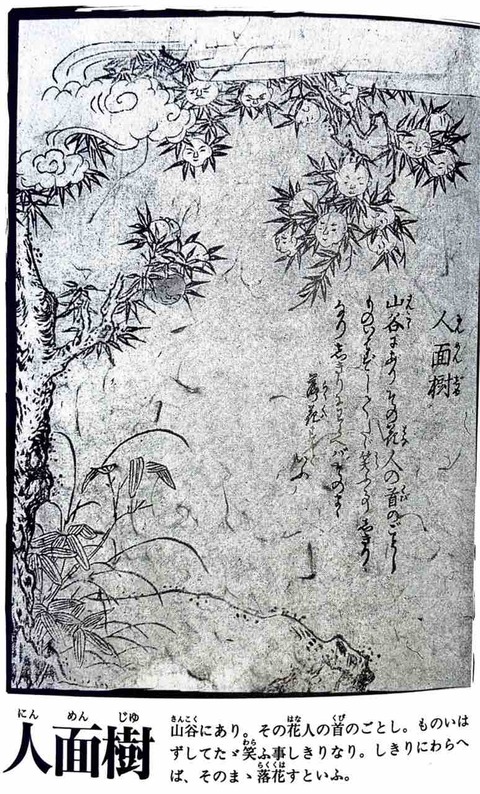 人面樹
山谷にありその花人の首のごとし
ものいはずしてたゞ笑ふ事しきり
なりしきりにわらへバそのまゝ
落花すといふ
にんめんじゆ
人面樹
山谷にあり。その花人の首のごとし。ものいは
ずしてたゞ笑ふ事しきりなり。しきりにわらへ
ば、そのまゝ落花すといふ。